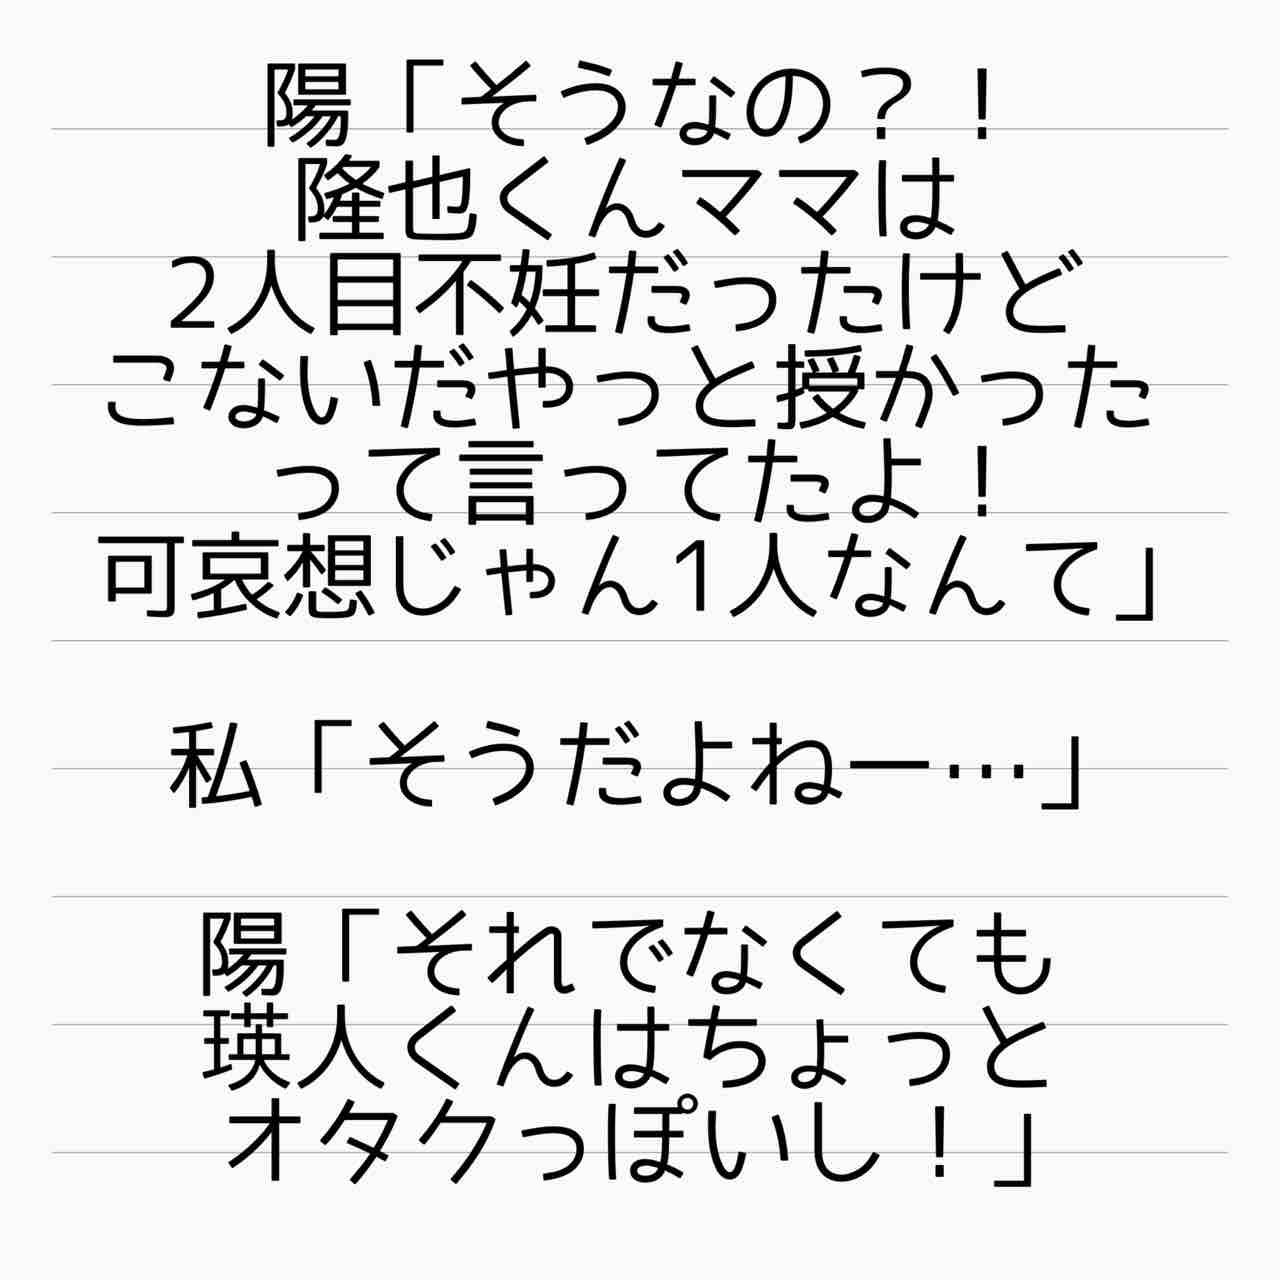 陽「そうなの？！
隆也くんママは
2人目不妊だったけど
こないだやっと授かった
って言ってたよ！
可哀想じゃん1人なんて」
私「そうだよねー…」
陽「それでなくても
瑛人くんはちょっと
オタクっぽいし！」